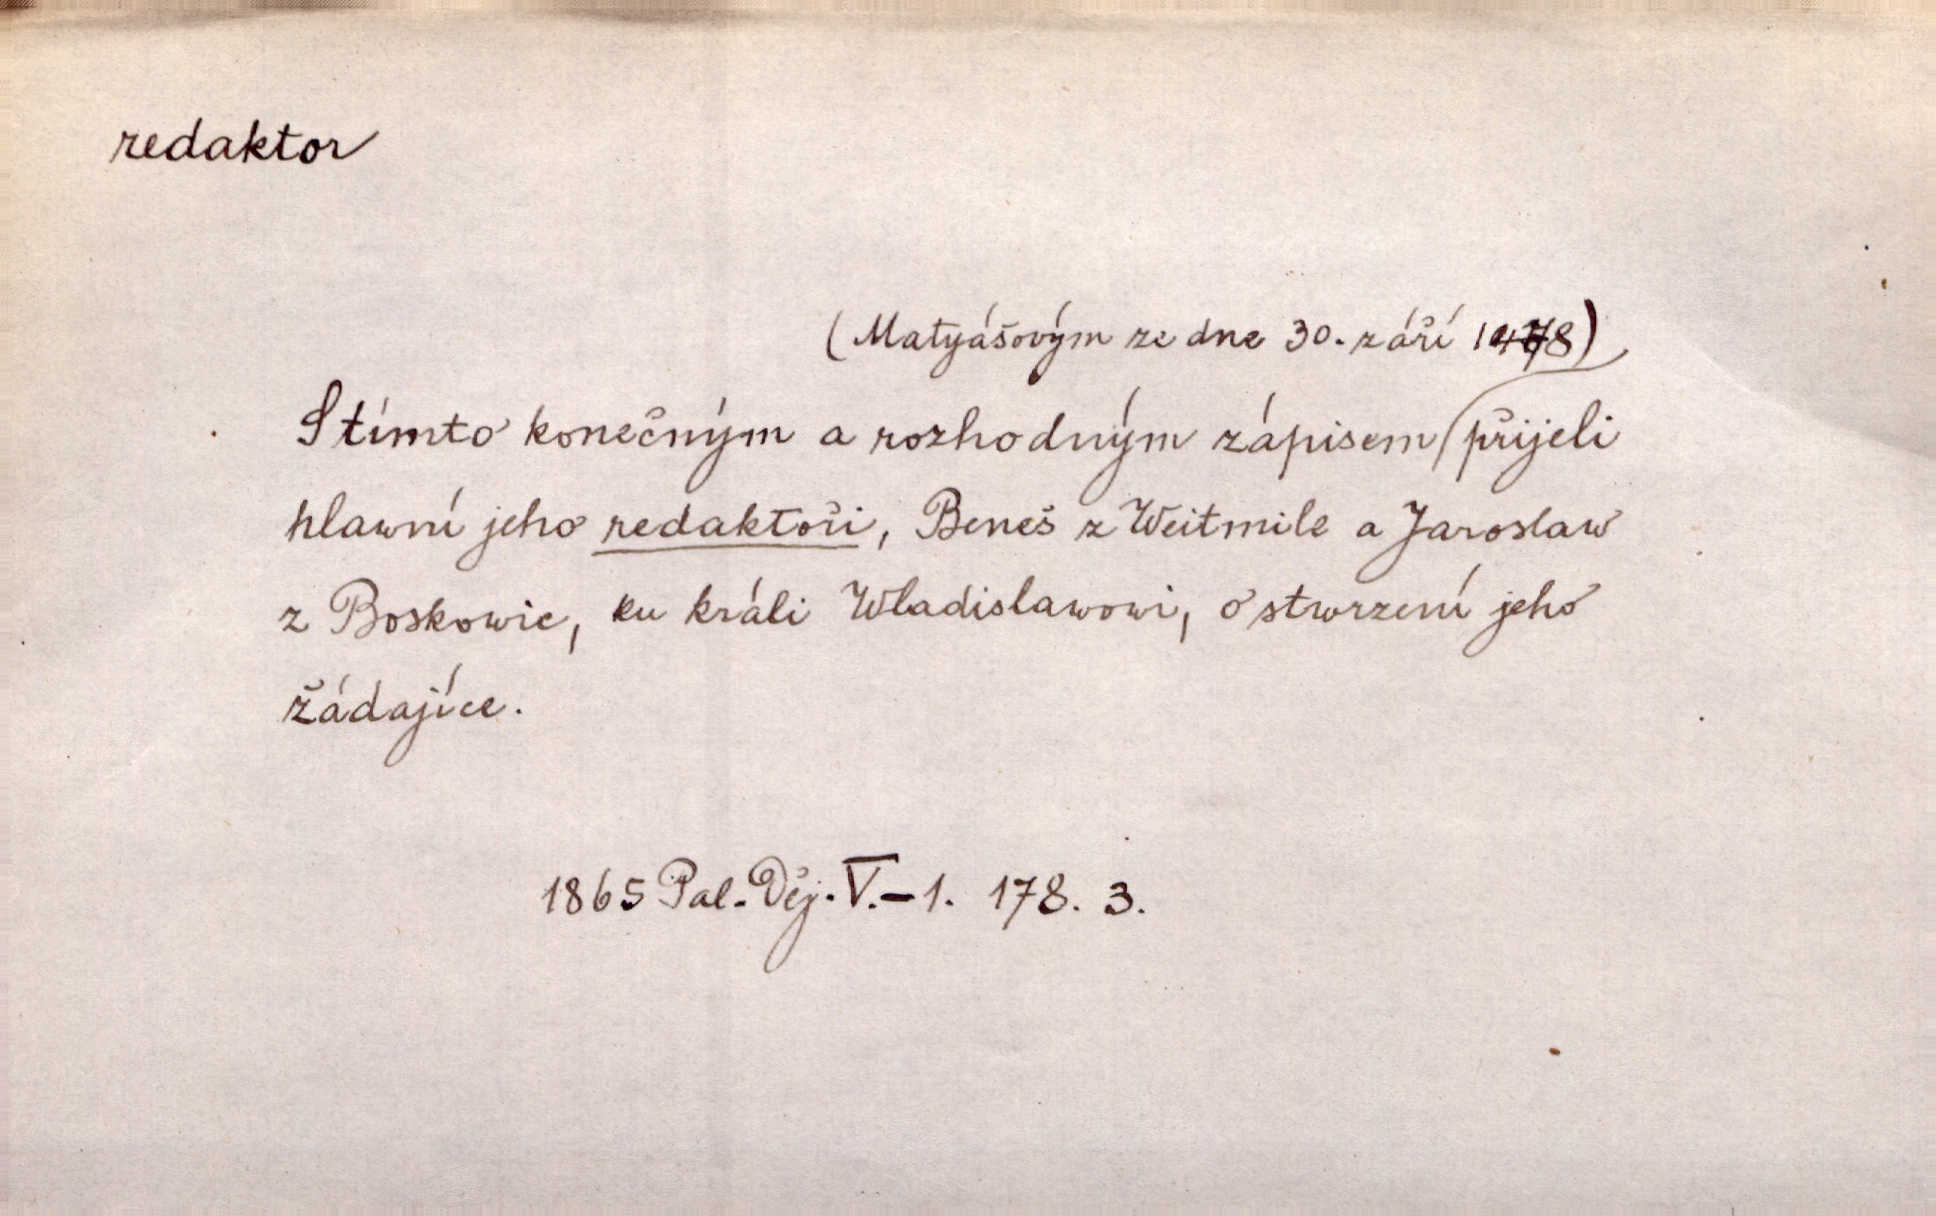 redaktor
(Matyášovým ze dne 30. září 1478)
S tímto konečným a rozhodným zápisem přijeli
hlawní jeho redaktoři, Beneš z Weitmile a Jaroslaw
z Boskowic, ku králi Wladislawowi, o stwrzení jeho
žádajíce.
1865 Pal. Děj. V.–1. 178. 3.